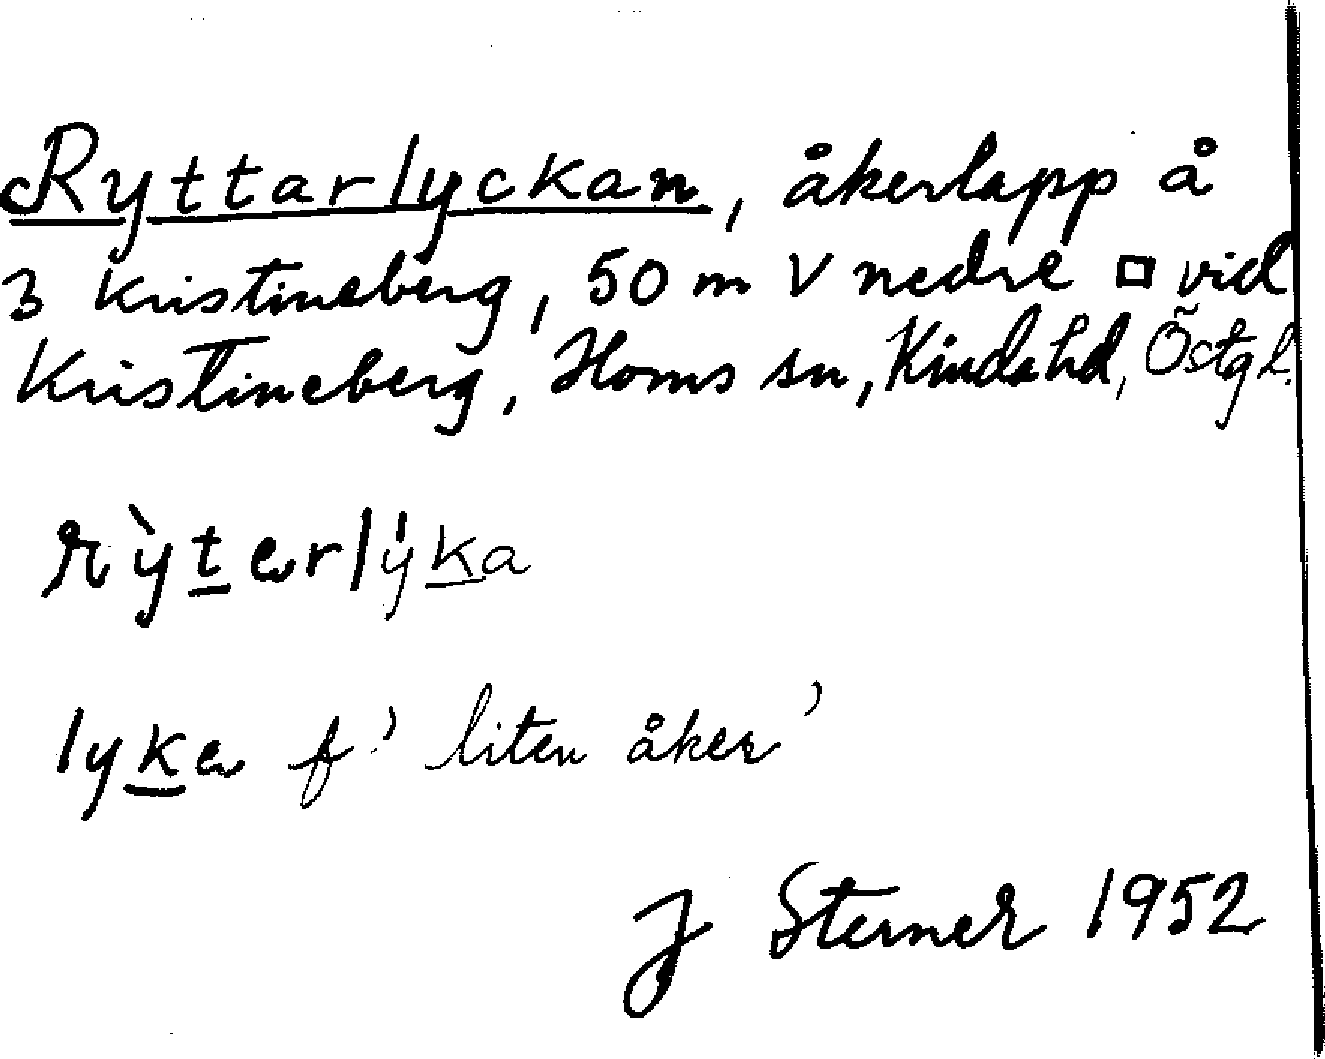 Ryttarlyckan, åkerlapp å
3 Kristineberg, 50 m V nedre □ vid
Kristineberg, Homs sn, Kinds hd, Östgl.
rỳtərlýka
lykə f ’ liten åker ’
J Sterner 1952